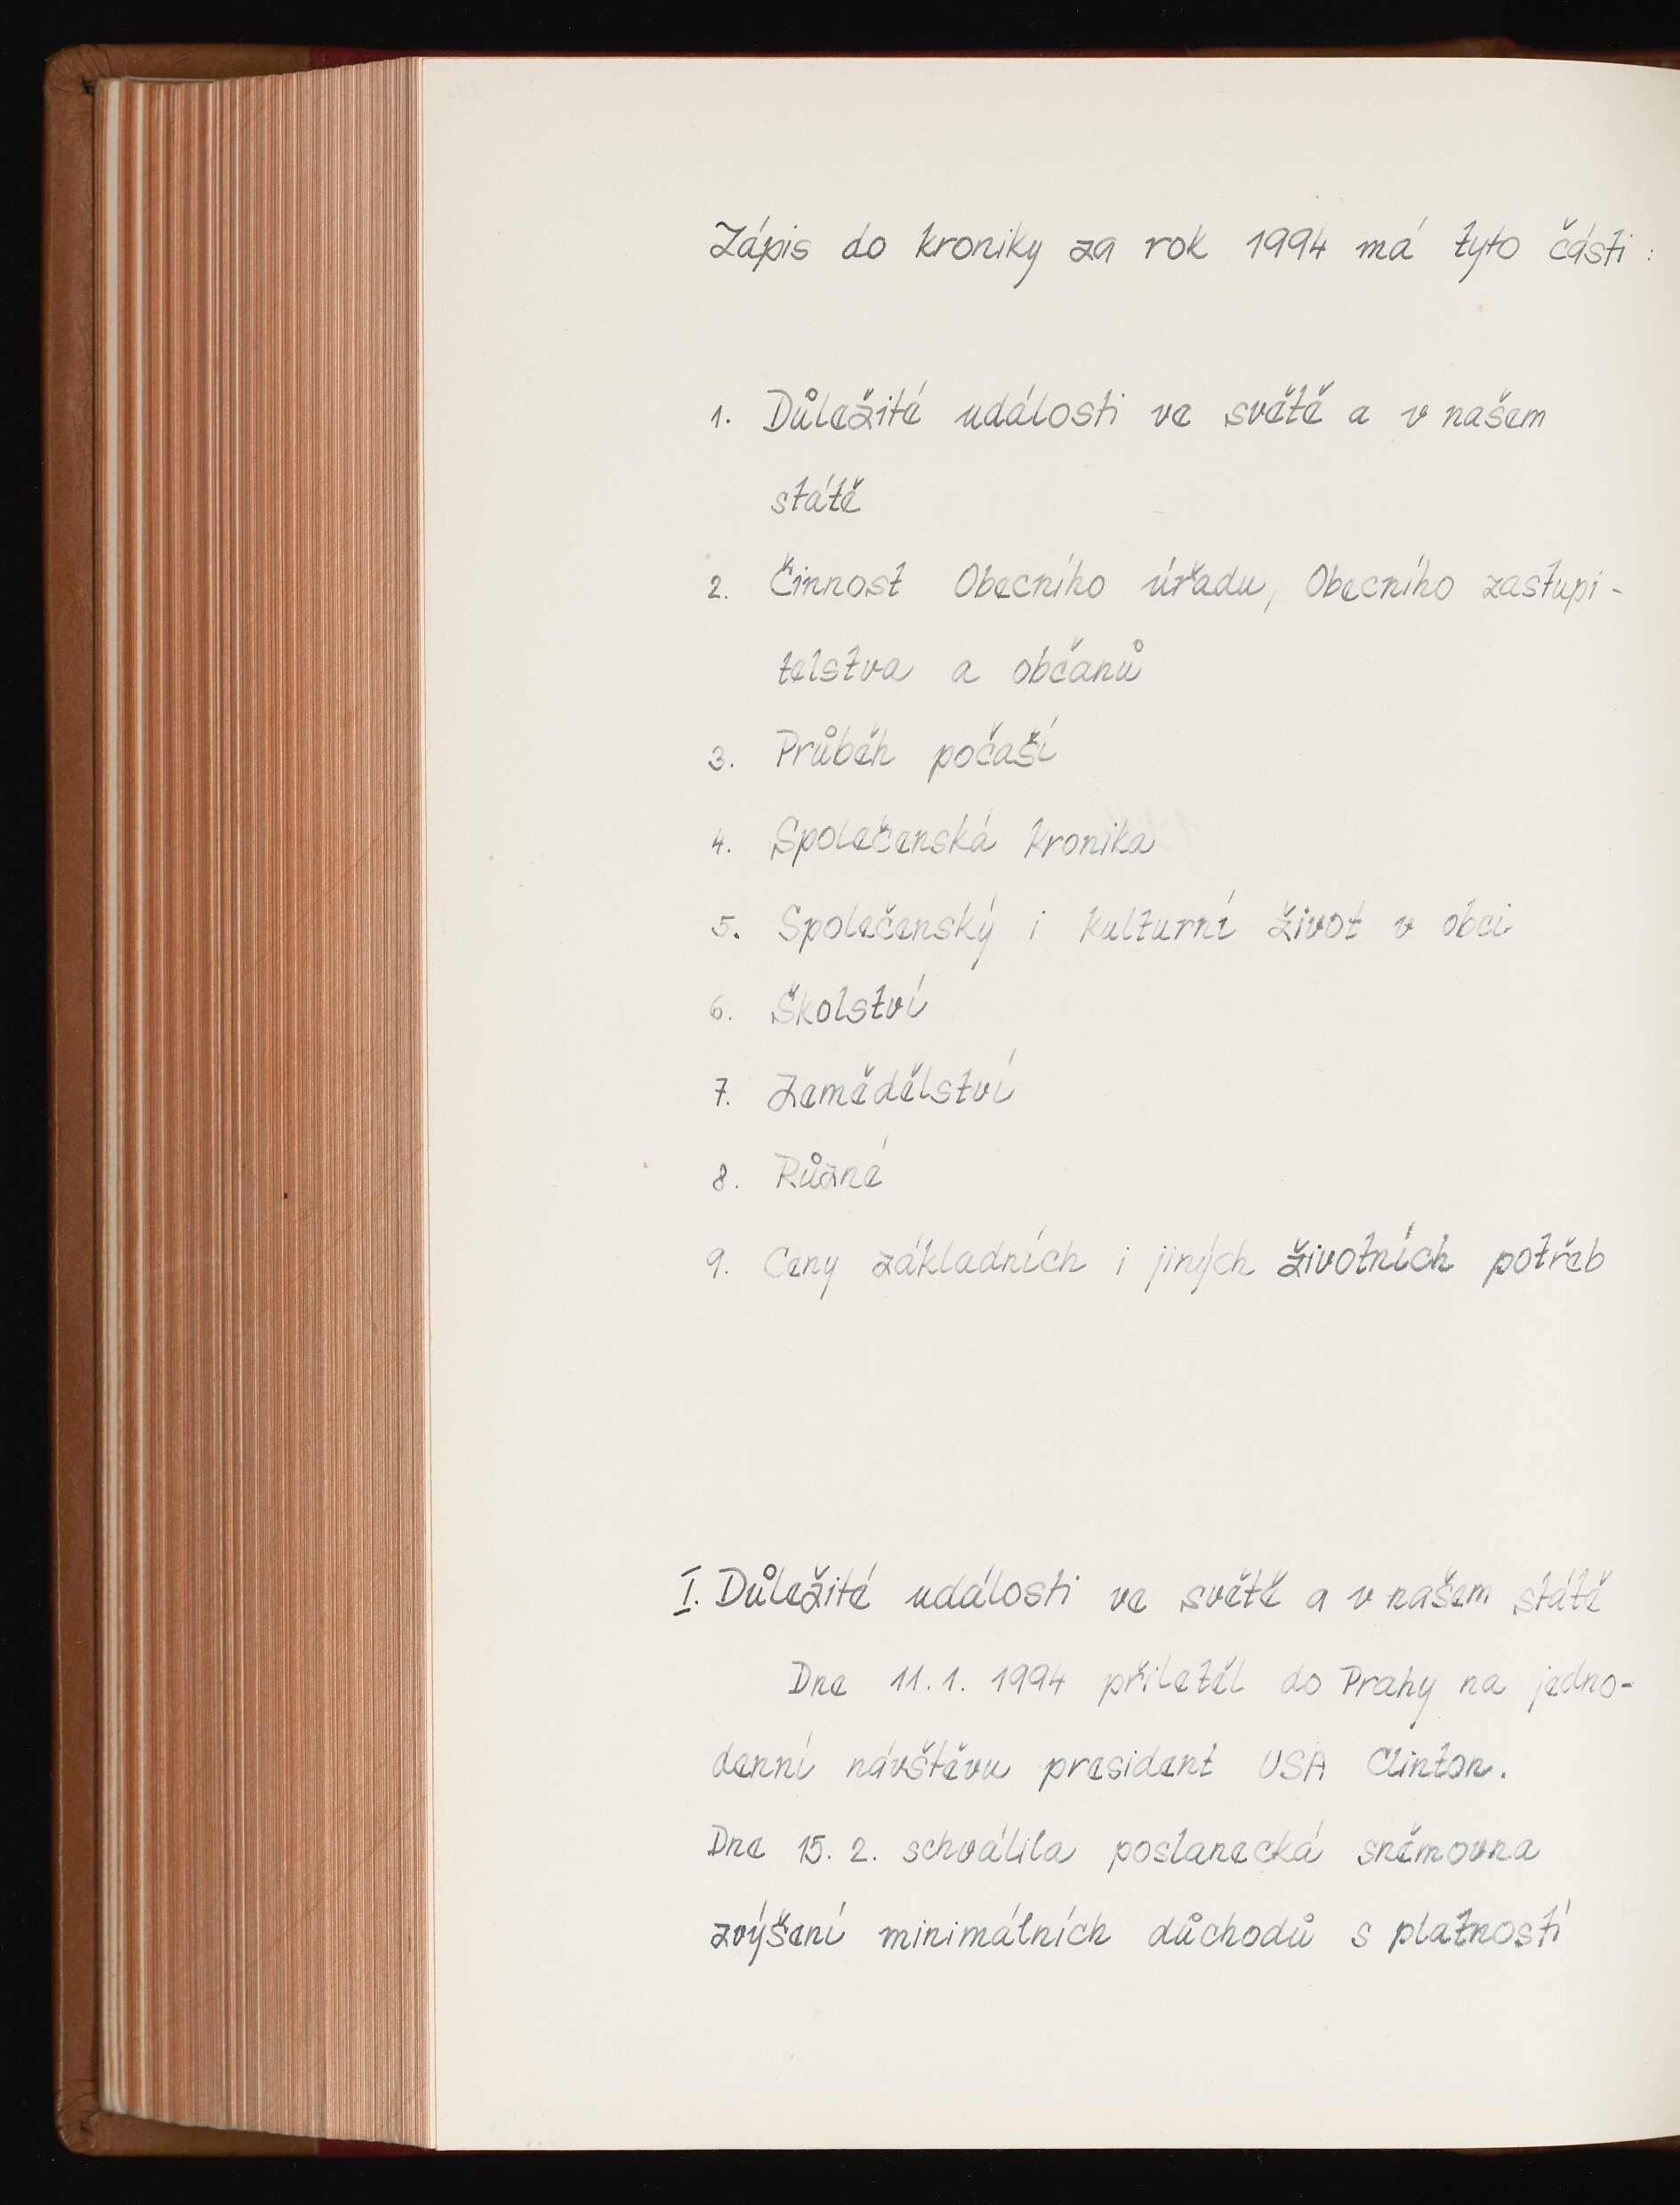 Zápis do kroniky za rok 1994 má tyto části:
1. Důležité události ve světě a v našem
státě
2. Činnost Obecního úřadu, Obecního zastupi-
telstva a občanů
3. Průběh počaší
4. Společenská kronika
5. Společenský i kulturní život v obci
6. Školství
7. Zemědělství
8. Různé
9. Ceny základních i jiných životních potřeb
I. Důležité události ve světě a v našem státě
Dne 11.1. 1994 přiletěl do Prahy na jedno-
denní návštěvu president USA Clinton.
Dne 15. 2. schválila poslanecká sněmovna
zvýšení minimálních důchodů s platností